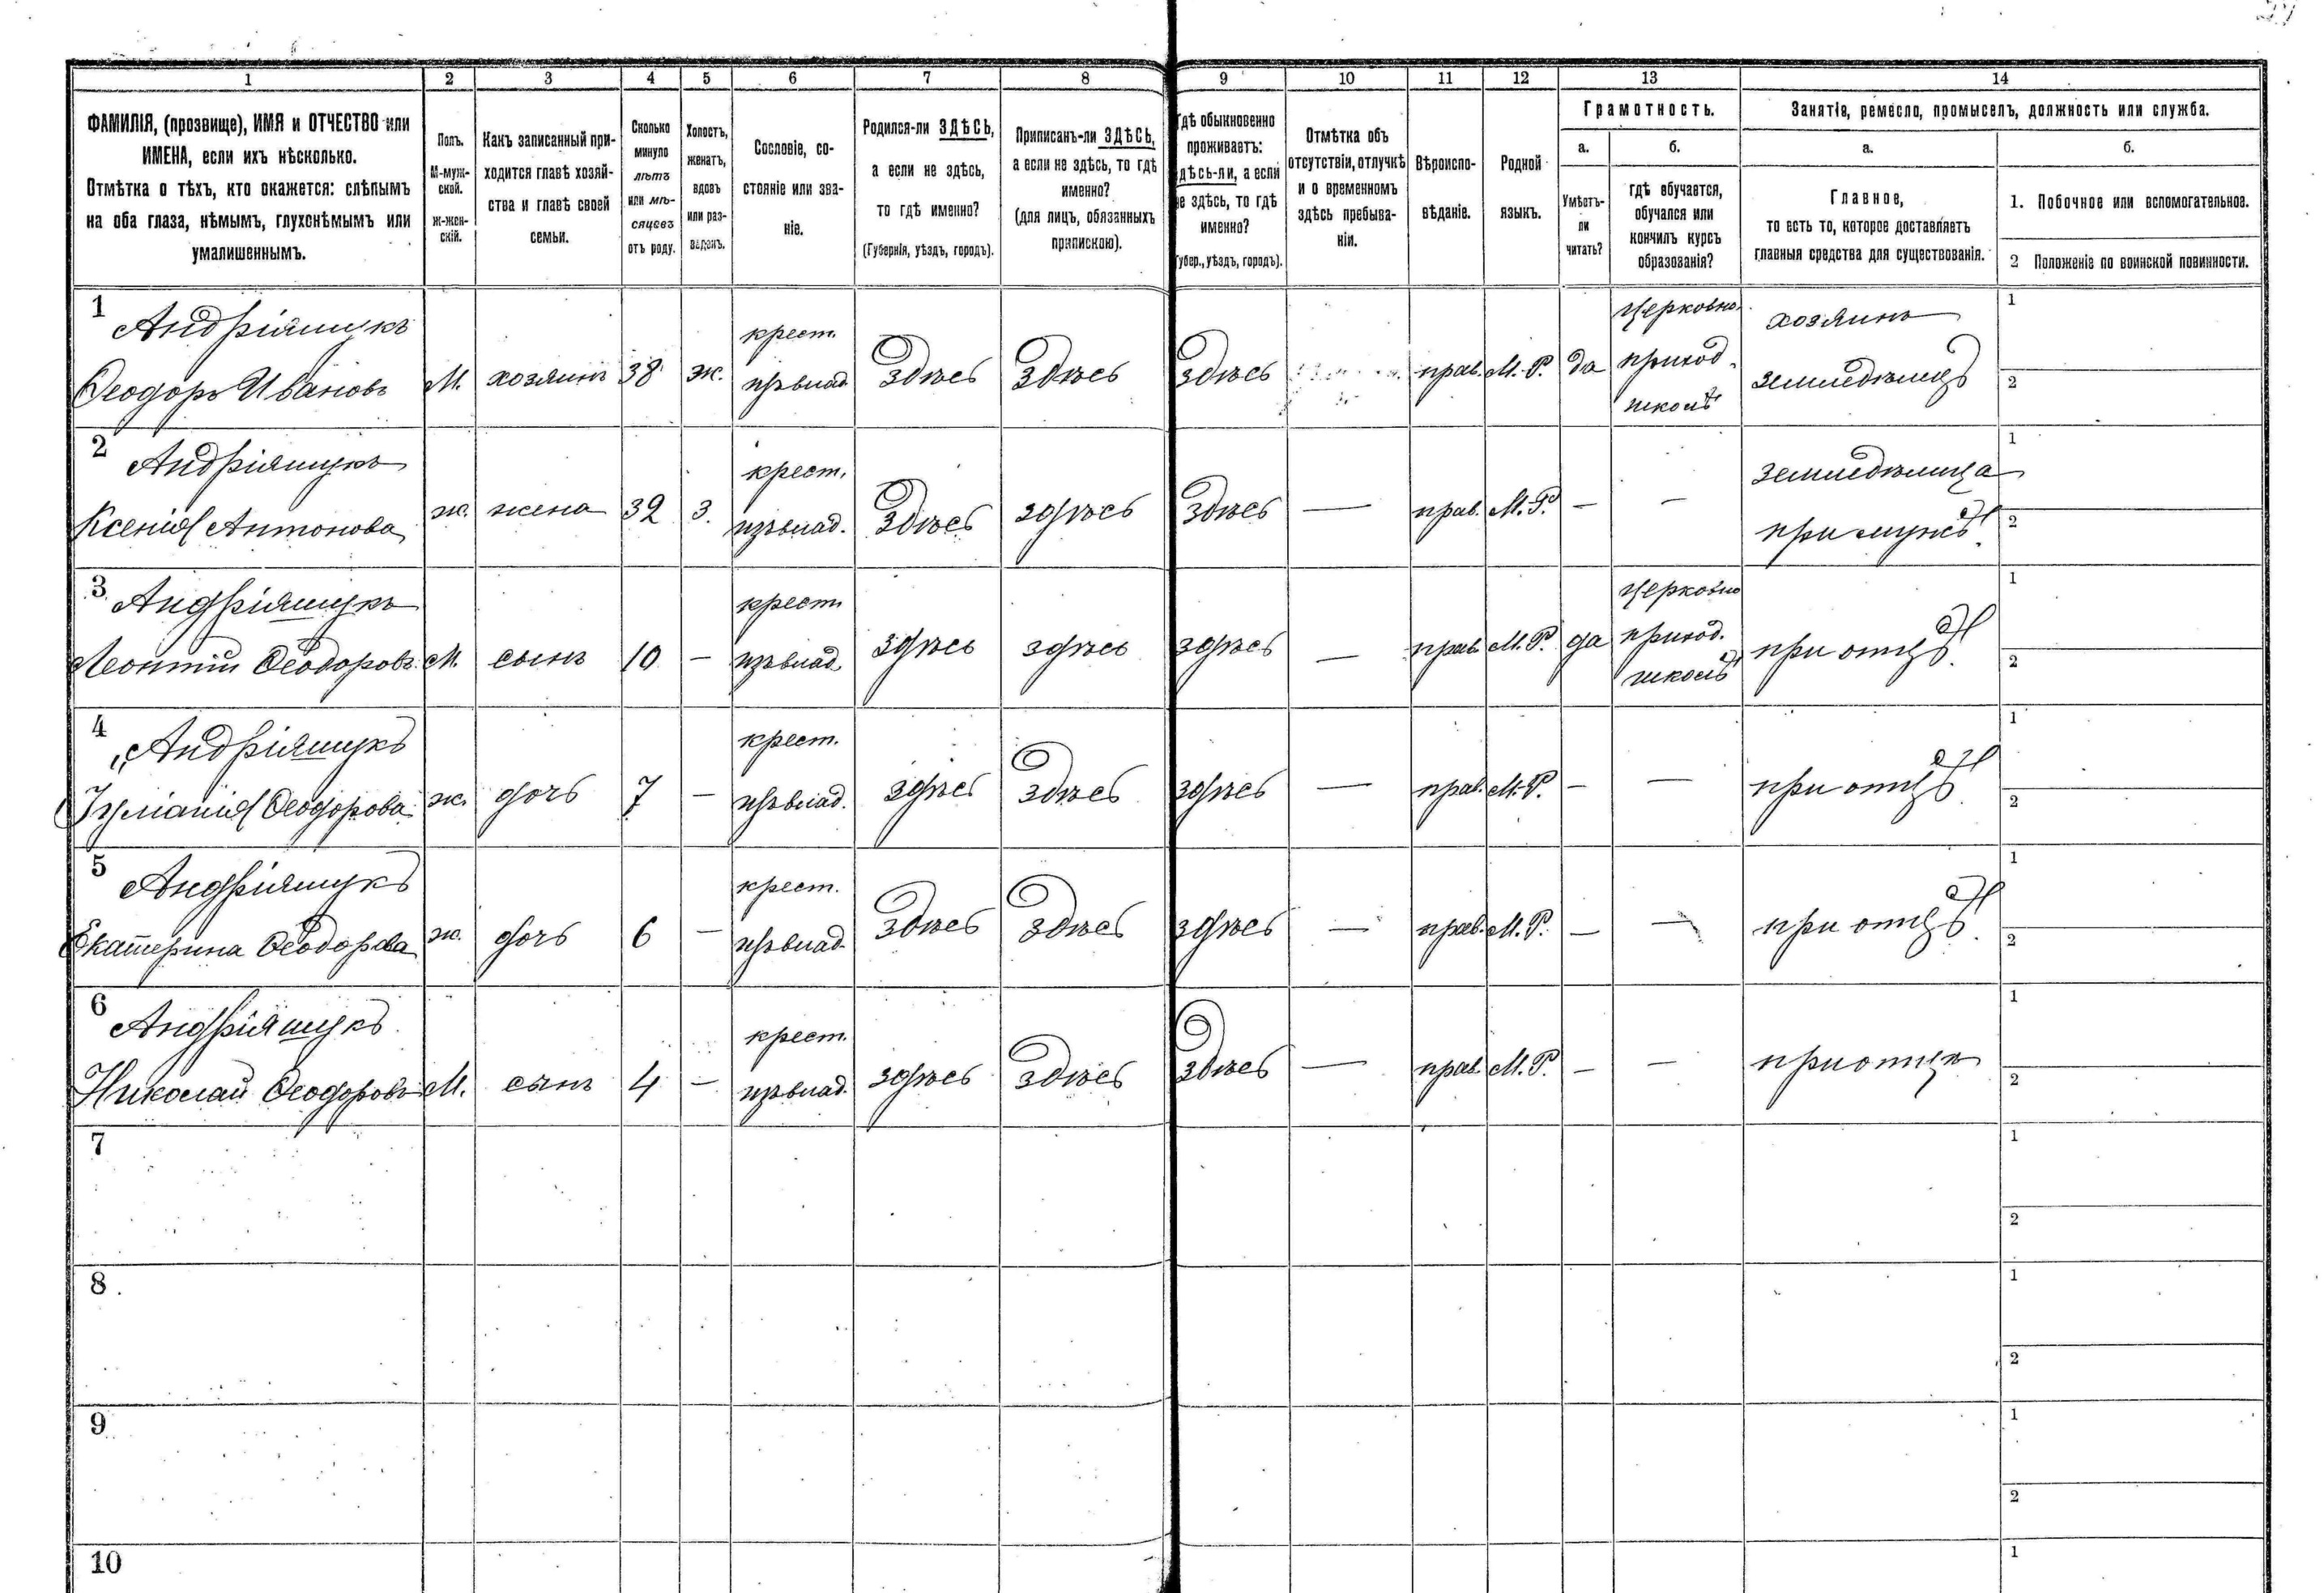 1 2 3 4 5 6 7 8 9 10 11 12 13 14
ФАМИЛІЯ, (прозвище), ИМЯ и ОТЧЕСТВО или
ИМЕНА, если ихъ нѣсколько.
Отмѣтка о тѣхъ, кто окажется: слѣпымъ
на оба глаза, нѣмымъ, глухонѣмымъ или
умалишеннымъ.
Полъ.
М-муж-
ской.
ж-жен-
скій.
Какъ записанный при-
ходится главѣ хозяй-
ства и главѣ своей
семьи.
Сколько
минуло
лѣтъ
или мѣ-
сяцевъ
отъ роду.
Холостъ,
женатъ,
вдовъ
или раз-
веденъ.
Сословіе, со-
стояніе или зва-
ніе.
Родился-ли ЗДѢСЬ,
а если не здѣсь,
то гдѣ именно?
(Губернія, уѣздъ, городъ).
Приписанъ-ли ЗДѢСЬ,
а если не здѣсь, то гдѣ
именно?
(для лицъ, обязанныхъ
припискою).
Гдѣ обыкновенно
проживаетъ:
здѣсь-ли, а если
не здѣсь, то гдѣ
именно?
(Губер., уѣздъ, городъ).
Отмѣтка объ
отсутствіи, отлучкѣ
и о временномъ
здѣсь пребыва-
ніи.
Вѣроиспо-
вѣданіе.
Родной
языкъ.
Грамотность.
а.
Умѣетъ-
ли
читать?
б.
гдѣ обучается,
обучался или
кончилъ курсъ
образованія?
Занятія, ремесло, промыселъ, должность или служба.
а.
Главное,
то есть то, которое доставляетъ
главныя средства для существованія.
б.
1. Побочное или вспомогательное.
2 Положеніе по воинской повинности.
1 Андріяшукъ крест. Церковно- хозяинъ 1
Ѳеодоръ Ивановъ М. хозяинъ 38 ж. изъ влад. Здѣсь Здѣсь Здѣсь прав. М.-Р. да приход. земледѣлецъ 2
школѣ
2 Андріяшукъ крест. земледѣлица 1
Ксенія Антонова ж. жена 32 з. изъ влад. Здѣсь здѣсь Здѣсь — прав. М.-Р. — — при мужѣ. 2
3 Андріяшукъ крест. Церковно 1
Леонтій Ѳеодоровъ М. сынъ 10 — изъ влад. здѣсь здѣсь здѣсь — прав. М.-Р. да приход. при отцѣ. 2
школѣ
4 Андріяшукъ крест. 1
Ѳеодорова ж. дочь 7 — изъ влад. здѣсь Здѣсь здѣсь — прав. М.-Р. — — при отцѣ. 2
5 Андріяшукъ крест. 1
Екатерина Ѳеодорова ж. дочь 6 — изъ влад. Здѣсь Здѣсь здѣсь — прав. М.-Р. — — при отцѣ. 2
6 Андріяшукъ крест. 1
Николай Ѳеодоровъ М. сынъ 4 — изъ влад. здѣсь Здѣсь Здѣсь — прав. М.-Р. — — при отцѣ 2
7 1
2
8 1
2
9 1
2
10 1